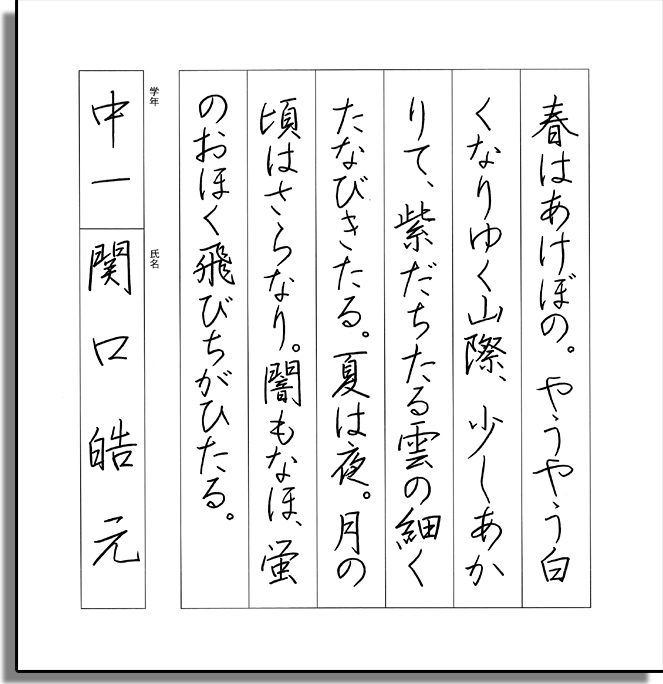 春はあけぼの。やうやう白
くなりゆく山際、少しあか
りて、紫だちたる雲の細く
たなびきたる。夏は夜。月の
頃はさらなり。闇もなほ、蛍
のおほく飛びちがひたる。
学年
中一
氏名
関口皓元